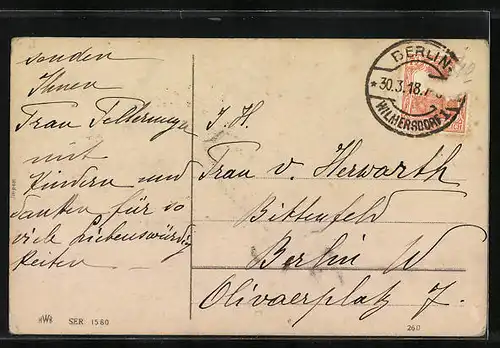 senden
Ihnen
Frau
mit
Kindern und
danken für so
viele Liebenswürdig
keiten
BERLIN-
*30.3.18.
WILMERSDORF 1
I. H.
Frau v. Herwarth
Bittenfeld
Berlin W
Olivaerplatz 7.
HWB SER 1580
260